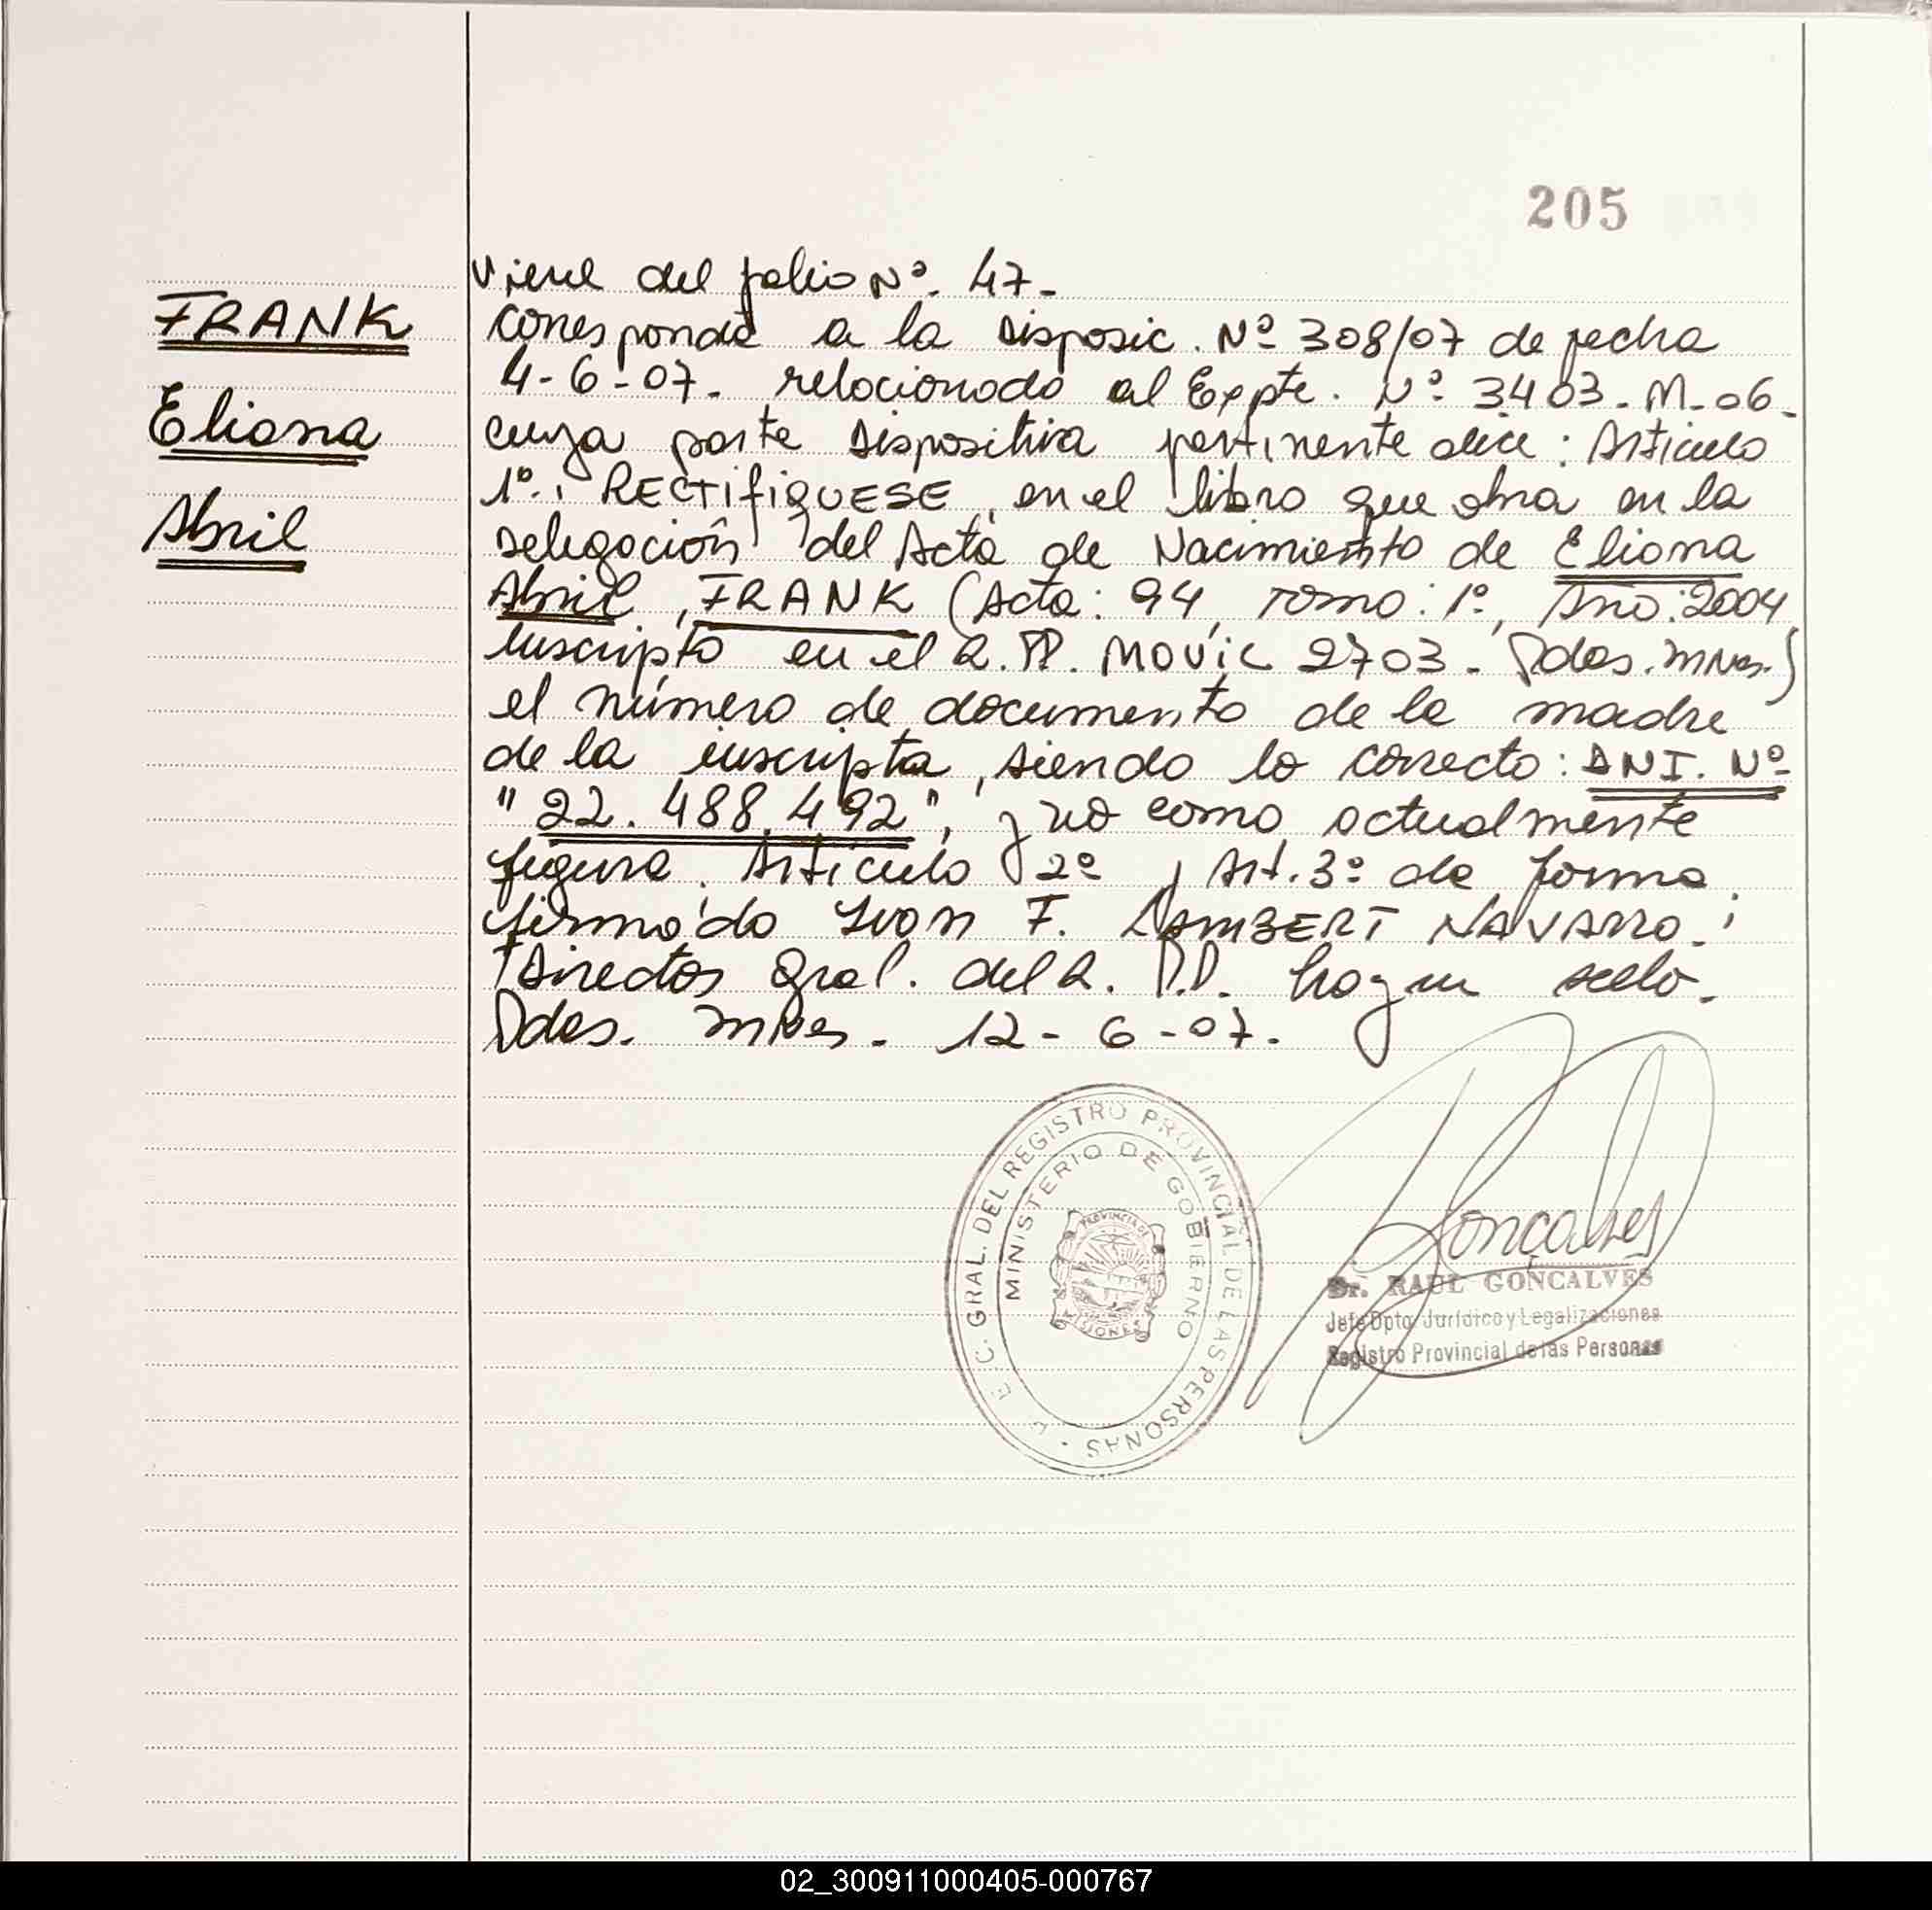 205
Viene del folio Nº. 47.-
FRANK
Corresponde a la Disposic. Nº 308/07 de fecha
4-6-07. relacionado al Expte. Nº 3403-M-06.
Eliana
cuya parte Dispositiva pertinente dice: Articulo
1º: RECTIFIQUESE, en el libro que obra en la
Abril
Delegación del Acta de Nacimiento de Eliana
Abril, FRANK (Acta: 94, Tomo: 1º, Año: 2004
Inscripto en el R.PP. MOVIL 2703- Pdas. Mnes.)
el número de documento de la madre
de la inscripta, siendo lo correcto: DNI. Nº
"22.488.492", y no como actualmente
figura. Articulo 2º y Art. 3º de forma.
firmado Ivon F. LAMBERT NAVARRO.;
Director Gral. del R. P.P. hay un sello.
Pdas. Mnes. 12-6-07.
GRAL. DEL REGISTRO PROVINCIAL DE LAS PERSONAS
MINISTERIO DE GOBIERNO
PROVINCIA DE
MISIONES
Goncalves
Dr. RAUL GONCALVES
Jefe Dpto Jurídico y Legalizaciones
Registro Provincial de las Personas
02_300911000405-000767